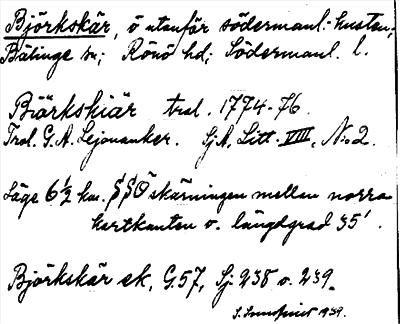 Björkskär, ö utanför södermanl. kusten;
Bälinge sn; Rönö hd; Södermanl. l.
Biärkskiär trol. 1774-76.
Trol. G.A. Lejonanker. Sj.A. Litt. VIII, N:o 2.
Läge 6½ km. SSO skärningen mellan norra
kartkanten o. längdgrad 35'.
Björkskär ek. G.57, Sj. 238 o. 239.
1939.